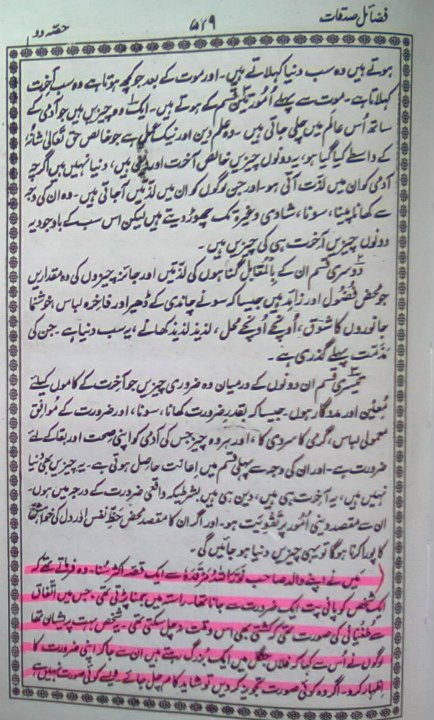 فضائل صدقات ۵۲۹ حصہ دوم
ہوتے ہیں وہ سب دنیا کہلاتے ہیں۔ اور موت کے بعد جو کچھ ہوتا ہے وہ سب آخرت
کہلاتا ہے۔ موت سے پہلے اُمور تین قسم کے ہوتے ہیں۔ ایک وہ چیزیں جو آدمی کے
ساتھ اُس عالم میں چلی جاتی ہیں۔ وہ علم دین اور نیک عمل ہے جو خالص حق تعالیٰ شانہٗ
کے واسطے کیا گیا ہو، یہ دونوں چیزیں خالص آخرت اور دین ہیں، دنیا نہیں ہیں اگرچہ
آدمی کو ان میں لذت آتی ہو۔ اور جن لوگوں کو ان میں لذتیں آجاتی ہیں۔ وہ ان کی وجہ
سے کھانا پینا، سونا، شادی وغیرہ تک چھوڑ دیتے ہیں لیکن اس سب کے باوجود یہ
دونوں چیزیں آخرت ہی کی چیزیں ہیں۔
دوسری قسم ان کے بالمقابل گناہوں کی لذتیں اور جائز چیزوں کی وہ مقداریں
جو محض فضول اور زائد ہیں جیسا کہ سونے چاندی کے ڈھیر اور فاخرہ لباس، خوشنما
جانوروں کا شوق، اُونچے اُونچے محل، لذیذ لذیذ کھانے، یہ سب دنیا ہے۔ جن کی
مذمت پہلے گذری ہے۔
تیسری قسم ان دونوں کے درمیان وہ ضروری چیزیں جو آخرت کے کاموں کیلئے
معین اور مددگار ہوں۔ جیسا کہ بقدر ضرورت کھانا، سونا، اور ضرورت کے موافق
معمولی لباس، گرمی کا سردی کا، اور ہر وہ چیز جس کی آدمی کو اپنی صحت اور بقا کے لئے
ضرورت ہے۔ اور ان کی وجہ سے پہلی قسم میں اعانت حاصل ہوتی ہے۔ یہ چیزیں بھی دنیا
نہیں ہیں، یہ آخرت ہی ہیں، دین ہی ہیں بشرطیکہ واقعی ضرورت کے درجہ میں ہوں۔
ان سے مقصد دینی اُمور پر تقویت ہو۔ اور اگر ان کا مقصد محض حظِ نفس اور دل کی خواہش
کا پورا کرنا ہوگا تو یہی چیزیں دنیا ہو جائیں گی۔
میں نے اپنے والد صاحب نور اللہ مرقدہٗ سے ایک قصہ اکثر سُنا۔ وہ فرماتے تھے کہ
ایک شخص کو پانی پت ایک ضرورت سے جانا تھا۔ راستہ میں جمنا پڑتی تھی۔ جس میں اتفاق
سے طغیانی کی صورت تھی کہ کشتی بھی اس وقت نہ چل سکتی تھی۔ یہ شخص بہت پریشان تھا
لوگوں نے اُس سے کہا کہ فلاں جنگل میں ایک بزرگ رہتے ہیں ان سے جا کر اپنی ضرورت کا
اظہار کرو۔ اگر وہ کوئی صورت تجویز کر دیں تو شاید کام چل جائے۔ ویسے کوئی صورت نہیں ہے